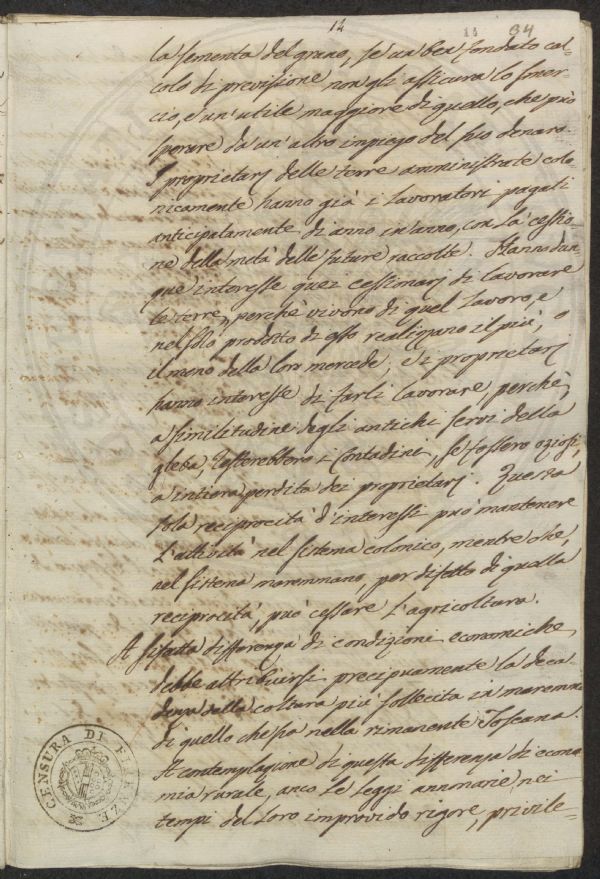 14
11 34
la sementa del grano, se un ben fondato cal-
colo di previsione non gli assicura lo smer-
cio, e un'utile maggiore di quello, che può
sperare da un'altro impiego del suo denaro.
I proprietarj delle terre amministrate colo-
nicamente hanno già i lavoratori pagati
anticipatamente di anno in'anno, con la cessio-
ne della metà delle future raccolte. Hanno dun-
que interesse quei cessionarj di lavorare
le terre, perchè vivono di quel lavoro, e
nel solo prodotto di esso realizzano il più, o
il meno della loro mercede, e i proprietarj
hanno interesse di farli lavorare, perchè,
a similitudine degli antichi servi della
gleba, resterebbero i Contadini, se fossero oziosi,
a intiera perdita dei proprietarj. Questa
sola reciprocità d'interessi può mantenere
l'attività nel sistema colonico, mentre che,
nel sistema maremmano, per difetto di quella
reciprocità, può cessare l'agricoltura.
A sifatta differenza di condizioni economiche
debbe attribuirsi precipuamente la deca
denza della coltura più sollecita in maremma
di quello che sia nella rimanente Toscana.
A contemplazione di questa differenza di econo
mia rurale, anco le leggi annonarie, nei
tempi del loro improvido rigore, privile-
CENSURA DI FIRENZE